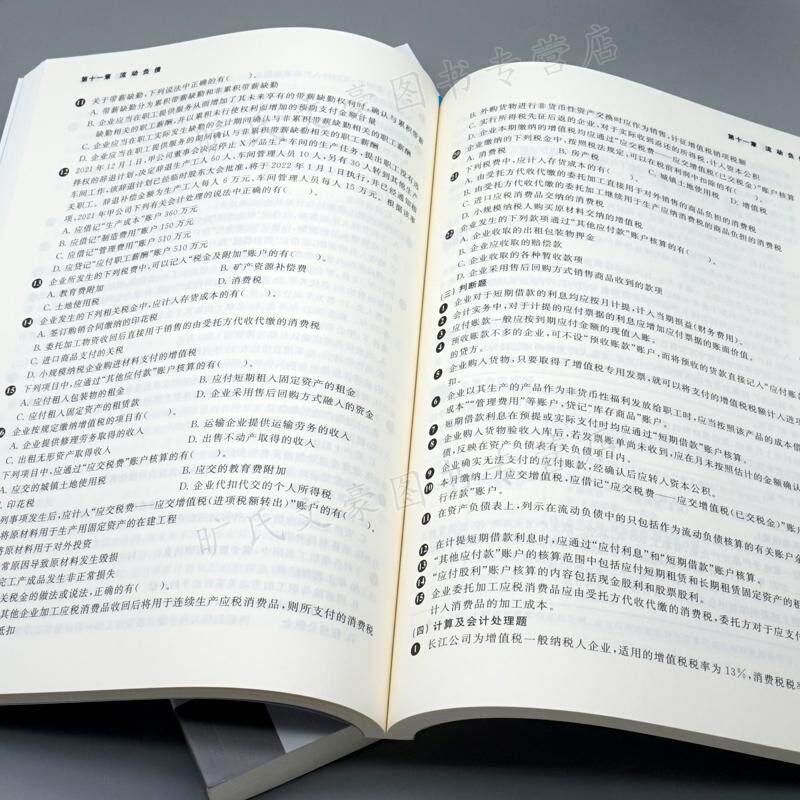 第十一章 流动负债
11 关于带薪缺勤,下列说法中正确的有( )。
A. 带薪缺勤分为累积带薪缺勤和非累积带薪缺勤
B. 企业应当在职工提供服务从而增加了其未来享有的带薪缺勤权利时,确认与累积带薪
缺勤相关的职工薪酬,并以累积未行使权利而增加的预期支付金额计量
C. 企业应当在职工实际发生缺勤的会计期间确认与非累积带薪缺勤相关的职工薪酬
D. 企业应当在职工提供服务的期间确认与非累积带薪缺勤相关的职工薪酬
12 2021年12月1日,甲公司董事会决定停止X产品生产车间的生产任务,提出职工没有选
择权的辞退计划,决定辞退生产工人60人、车间管理人员10人,另有30人转到其他生产
车间工作,该辞退计划已经临时股东大会批准,于2022年1月1日执行,并已经通知相
关职工。辞退补偿金额为生产工人每人6万元、车间管理人员每人15万元。根据该事
项,2021年甲公司下列有关会计处理的说法中正确的有( )。
A. 应借记“生产成本”账户360万元
B. 应借记“制造费用”账户150万元
C. 应借记“管理费用”账户510万元
D. 应贷记“应付职工薪酬”账户510万元
13 企业所发生的下列税费中,可以记入“税金及附加”账户的有( )。
A. 教育费附加 B. 矿产资源补偿费
C. 土地使用税 D. 消费税
14 企业发生的下列相关税金中,应计入存货成本的有( )。
A. 签订购销合同缴纳的印花税
B. 委托加工物资收回后直接用于销售的由受托方代收代缴的消费税
C. 进口商品支付的关税
D. 小规模纳税企业购进材料支付的增值税
15 下列项目中,应通过“其他应付款”账户核算的有( )。
A. 应付租入包装物的租金 B. 应付短期租入固定资产的租金
C. 应付租入固定资产的租赁款 D. 企业采用售后回购方式融入的资金
16 企业按规定缴纳增值税的项目有( )。
A. 企业提供修理劳务取得的收入 B. 运输企业提供运输劳务的收入
C. 出租无形资产取得收入 D. 出售不动产取得的收入
下列项目中,应通过“应交税费”账户核算的有( )。
A. 应交的城镇土地使用税 B. 应交的教育费附加
印花税 D. 企业代扣代交的个人所得税
列事项发生后,应计入“应交税费——应交增值税(进项税额转出)”账户的有( )。
将原材料用于生产用固定资产的在建工程
将原材料用于对外投资
常原因导致原材料发生毁损
完工产成品发生非正常损失
关税金的做法或说法,正确的有( )。
其他企业加工应税消费品收回后将用于连续生产应税消费品,则所支付的消费税
抵扣
第十一章 流动负
B. 外购货物进行非货币性资产交换时应作为销售,计征增值税销项税额
C. 实行所得税先征后返的企业,对于实际收到返还的所得税,计入资本公积
D. 企业本期缴纳的增值税均应通过“应交税费——应交增值税(已交税金)”账户核算
20 企业缴纳的下列税金中,按照税法规定,可以在税前利润中扣除的有( )。
A. 消费税 B. 房产税 C. 城镇土地使用税 D. 增值税
21 下列税费中,应计入存货成本的有( )。
A. 由受托方代收代缴的委托加工直接用于对外销售的商品负担的消费税
B. 由受托方代收代缴的委托加工继续用于生产应纳消费税的商品负担的消费税
C. 进口应税消费品交纳的消费税
D. 小规模纳税人购买原材料交纳的增值税
22 企业发生的下列款项通过“其他应付款”账户核算的有( )。
A. 企业收取的出租包装物押金
B. 企业应收取的赔偿款
C. 企业收取的各种暂收款项
D. 企业采用售后回购方式销售商品收到的款项
(三) 判断题
1 企业对于短期借款的利息均应按月计提,计入当期损益(财务费用)。
2 会计实务中,对于计提的应付票据的利息应增加应付票据的账面价值。
3 应付账款一般应按到期应付金额的现值入账。
4 预收账款不多的企业,可不设“预收账款”账户,而将预收的货款直接记入“应付账
的贷方。
5 企业购入货物,只要取得了增值税专用发票,就可以将支付的增值税税额计入进项
扣。
6 企业以其生产的产品作为非货币性福利发放给职工时,应当按照该产品的成本借
成本”“管理费用”等账户,贷记“库存商品”账户。
7 短期借款利息在预提或实际支付时均应通过“短期借款”账户核算。
8 企业购入货物验收入库后,若发票账单尚未收到,应在月末按照估计的金额确认
债,反映在资产负债表有关负债项目内。
9 企业确实无法支付的应付账款,经确认后应转入资本公积。
10 本月缴纳上月应交增值税,应借记“应交税费——应交增值税(已交税金)”账户
行存款”账户。
11 在资产负债表上,列示在流动负债中的只包括作为流动负债核算的有关账户余
12 在计提短期借款利息时,应通过“应付利息”和“短期借款”账户核算。
13 “其他应付款”账户的核算范围中包括应付短期租赁和长期租赁固定资产的租
14 “应付股利”账户核算的内容包括现金股利和股票股利。
15 企业委托加工应税消费品应由受托方代收代缴的消费税,委托方对于应支付
计入消费品的加工成本。
(四) 计算及会计处理题
1 长江公司为增值税一般纳税人企业,适用的增值税税率为13%,消费税税率
旷氏文豪图书专营店